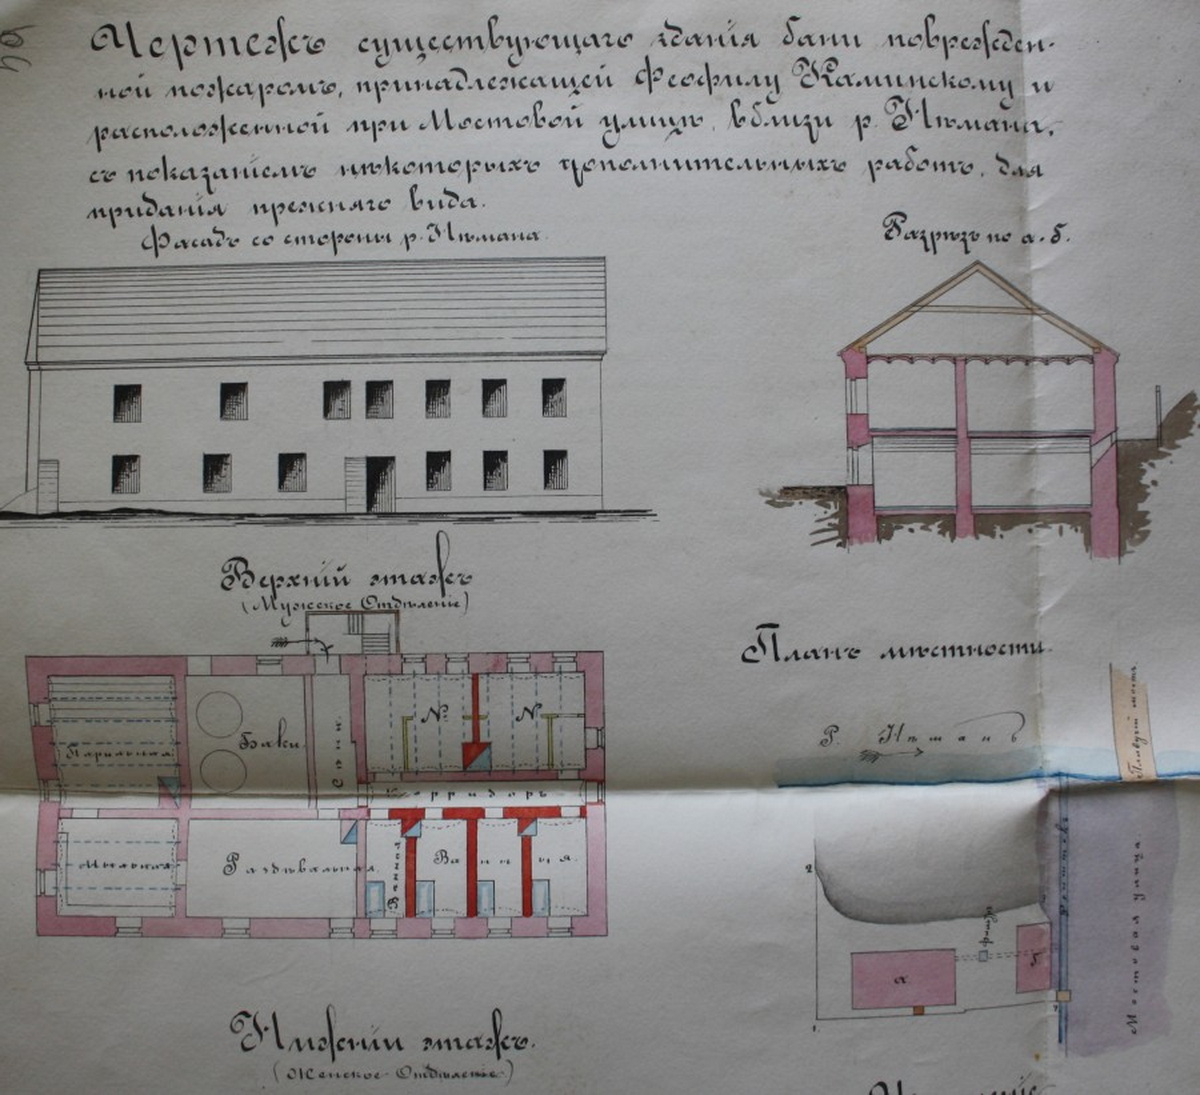 Чертежъ существующаго зданія бани поврежден-
ной пожаромъ, принадлежащей Феофилу Каминскому и
расположенной при Мостовой улицѣ, вблизи р. Нѣмана,
съ показаніемъ нѣкоторыхъ дополнительныхъ работъ, для
приданія прежняго вида.
Фасадъ со стороны р. Нѣмана.
Разрѣзъ по а.б.
Верхній этажъ
(Мужское Отдѣленіе)
Планъ мѣстности
Плавучій мостъ
Р. Нѣманъ
№ №
Парильная
Баки
Сѣни
Корридоръ
Мыльная
Раздѣвальная
Ванная
Ванныя
2
фильтръ
а
б
1
Мостовая улица
Нижній этажъ.
(Женское Отдѣленіе)